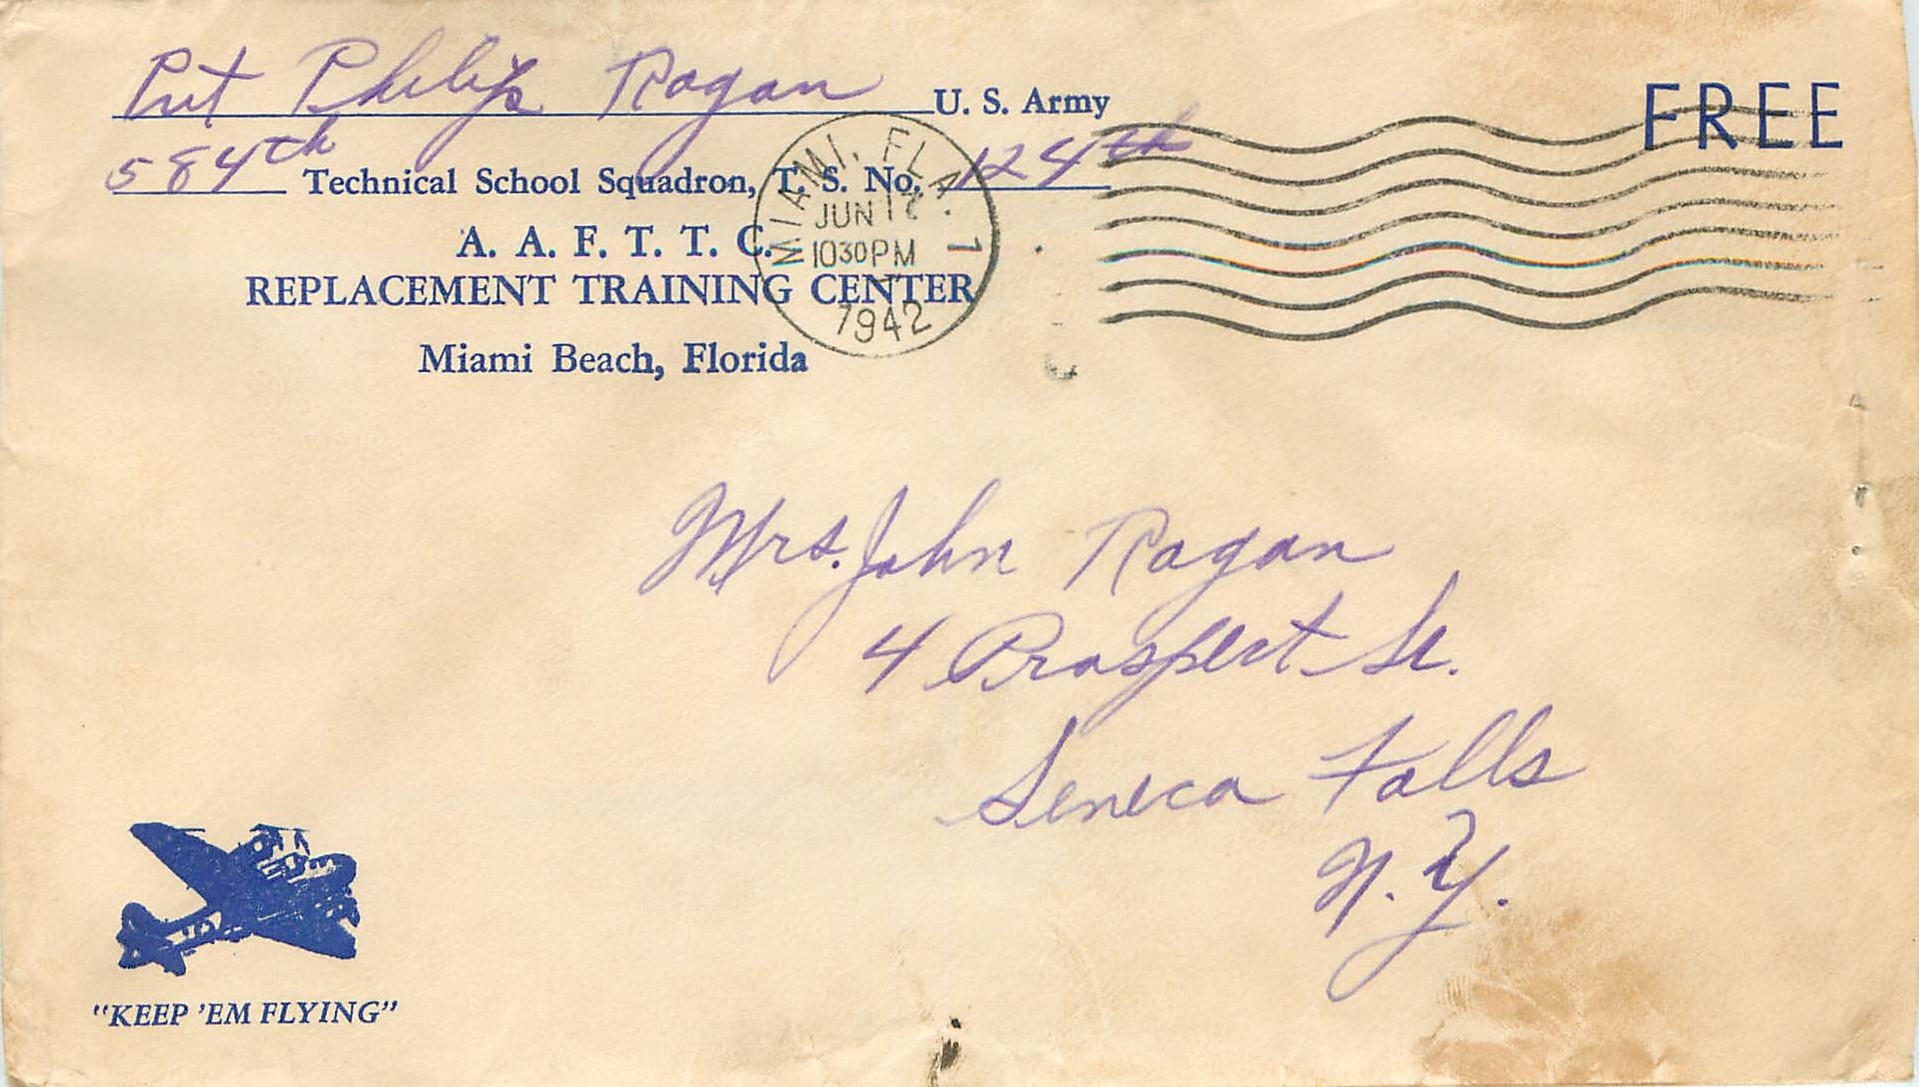 Pvt Philip Ragan U. S. Army
584th Technical School Squadron, T. S. No. 124th
A. A. F. T. T. C.
REPLACEMENT TRAINING CENTER
Miami Beach, Florida
MIAMI, FLA. 1
JUN 17
1030PM
1942
FREE
Mrs. John Ragan
4 Prospect St.
Seneca Falls
N. Y.
"KEEP 'EM FLYING"